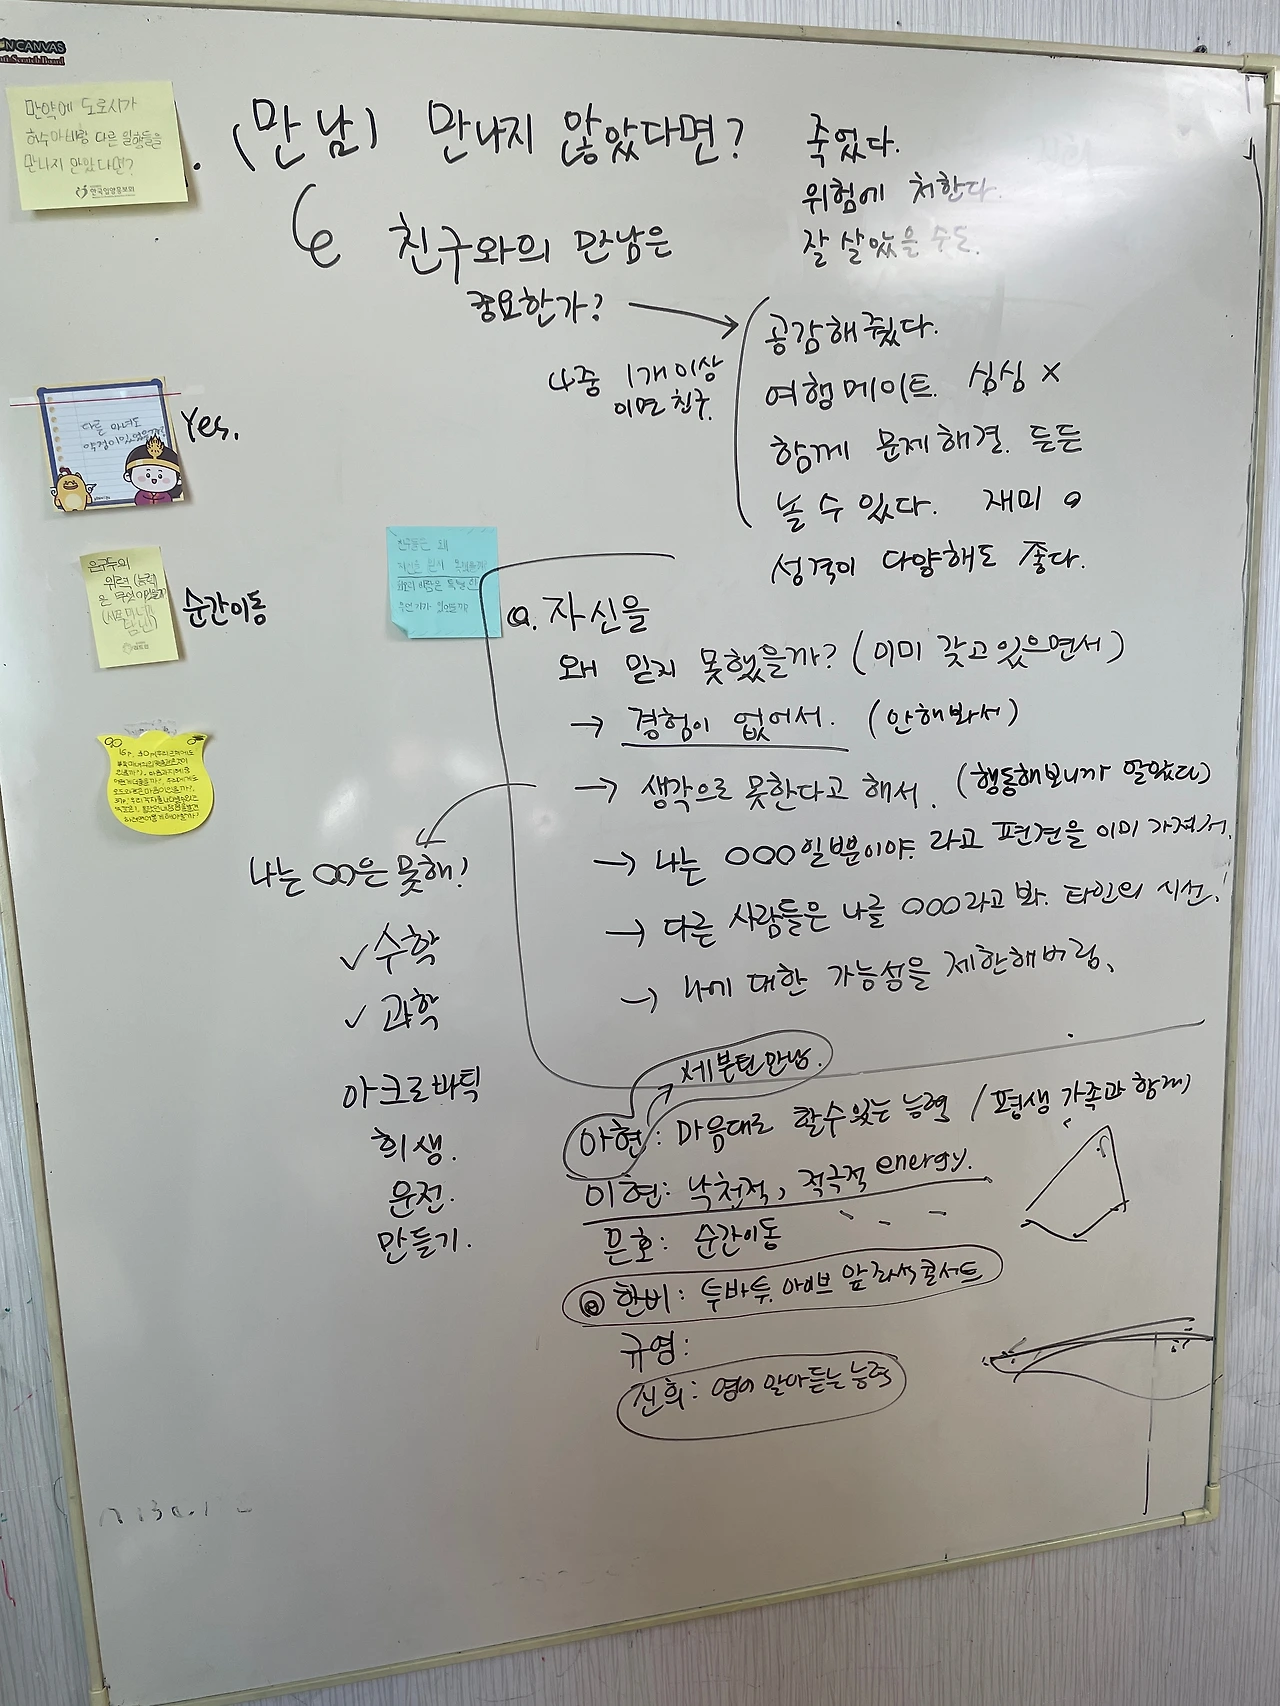 만약에 도로시가
허수아비랑 다른 일행들을
만나지 않았다면?
(만남) 만나지 않았다면?
죽었다.
위험에 처한다.
잘 살았을 수도.
친구와의 만남은
중요한가?
나중 1개 이상
이면 친구.
공감해줬다.
여행메이트. 심심 X
함께 문제해결. 든든
놀 수 있다. 재미 o
성격이 다양해도 좋다.
다른 마녀도
약점이 있었을까?
Yes.
은구두의
위력(능력)
은 무엇이었을까
순간이동
친구들은 왜
자신을 믿지 못했을까?
Q. 자신을
왜 믿지 못했을까? (이미 갖고 있으면서)
→ 경험이 없어서. (안해봐서)
→ 생각으로 못한다고 해서. (행동해보니까 알았다)
→ 나는 OOO일뿐이야. 라고 편견을 이미 가져서.
→ 다른 사람들은 나를 OOO라고 봐. 타인의 시선!
→ 나에 대한 가능성을 제한해버림.
나는 OO은 못해!
✓ 수학
✓ 과학
아크로바틱
희생.
운전.
만들기.
세븐틴만남.
아현: 마음대로 할수있는 능력 / 평생 가족과 함께
이현: 낙천적, 적극적 energy.
은호: 순간이동
한비: 투바투. 아이브 앞좌석 콘서트
규영:
진희: 영어 알아듣는 능력